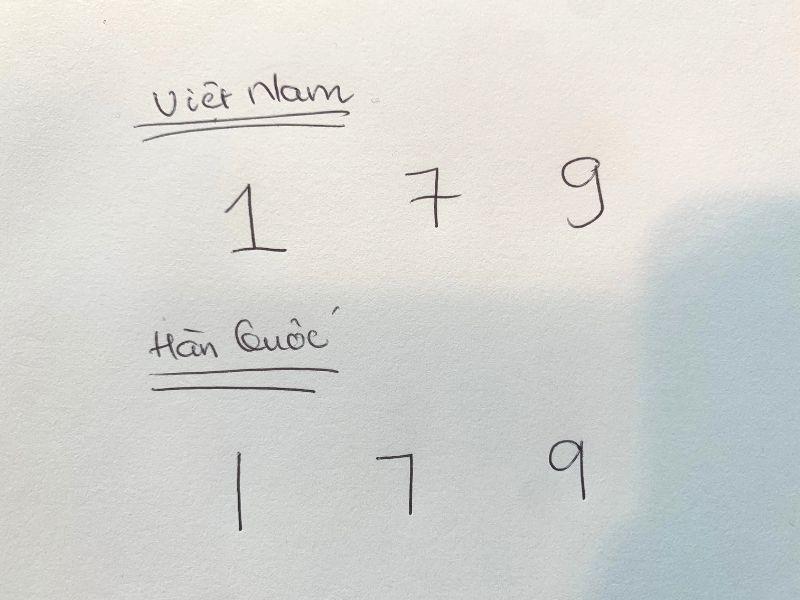 Việt Nam
1 7 9
Hàn Quốc
1 7 9